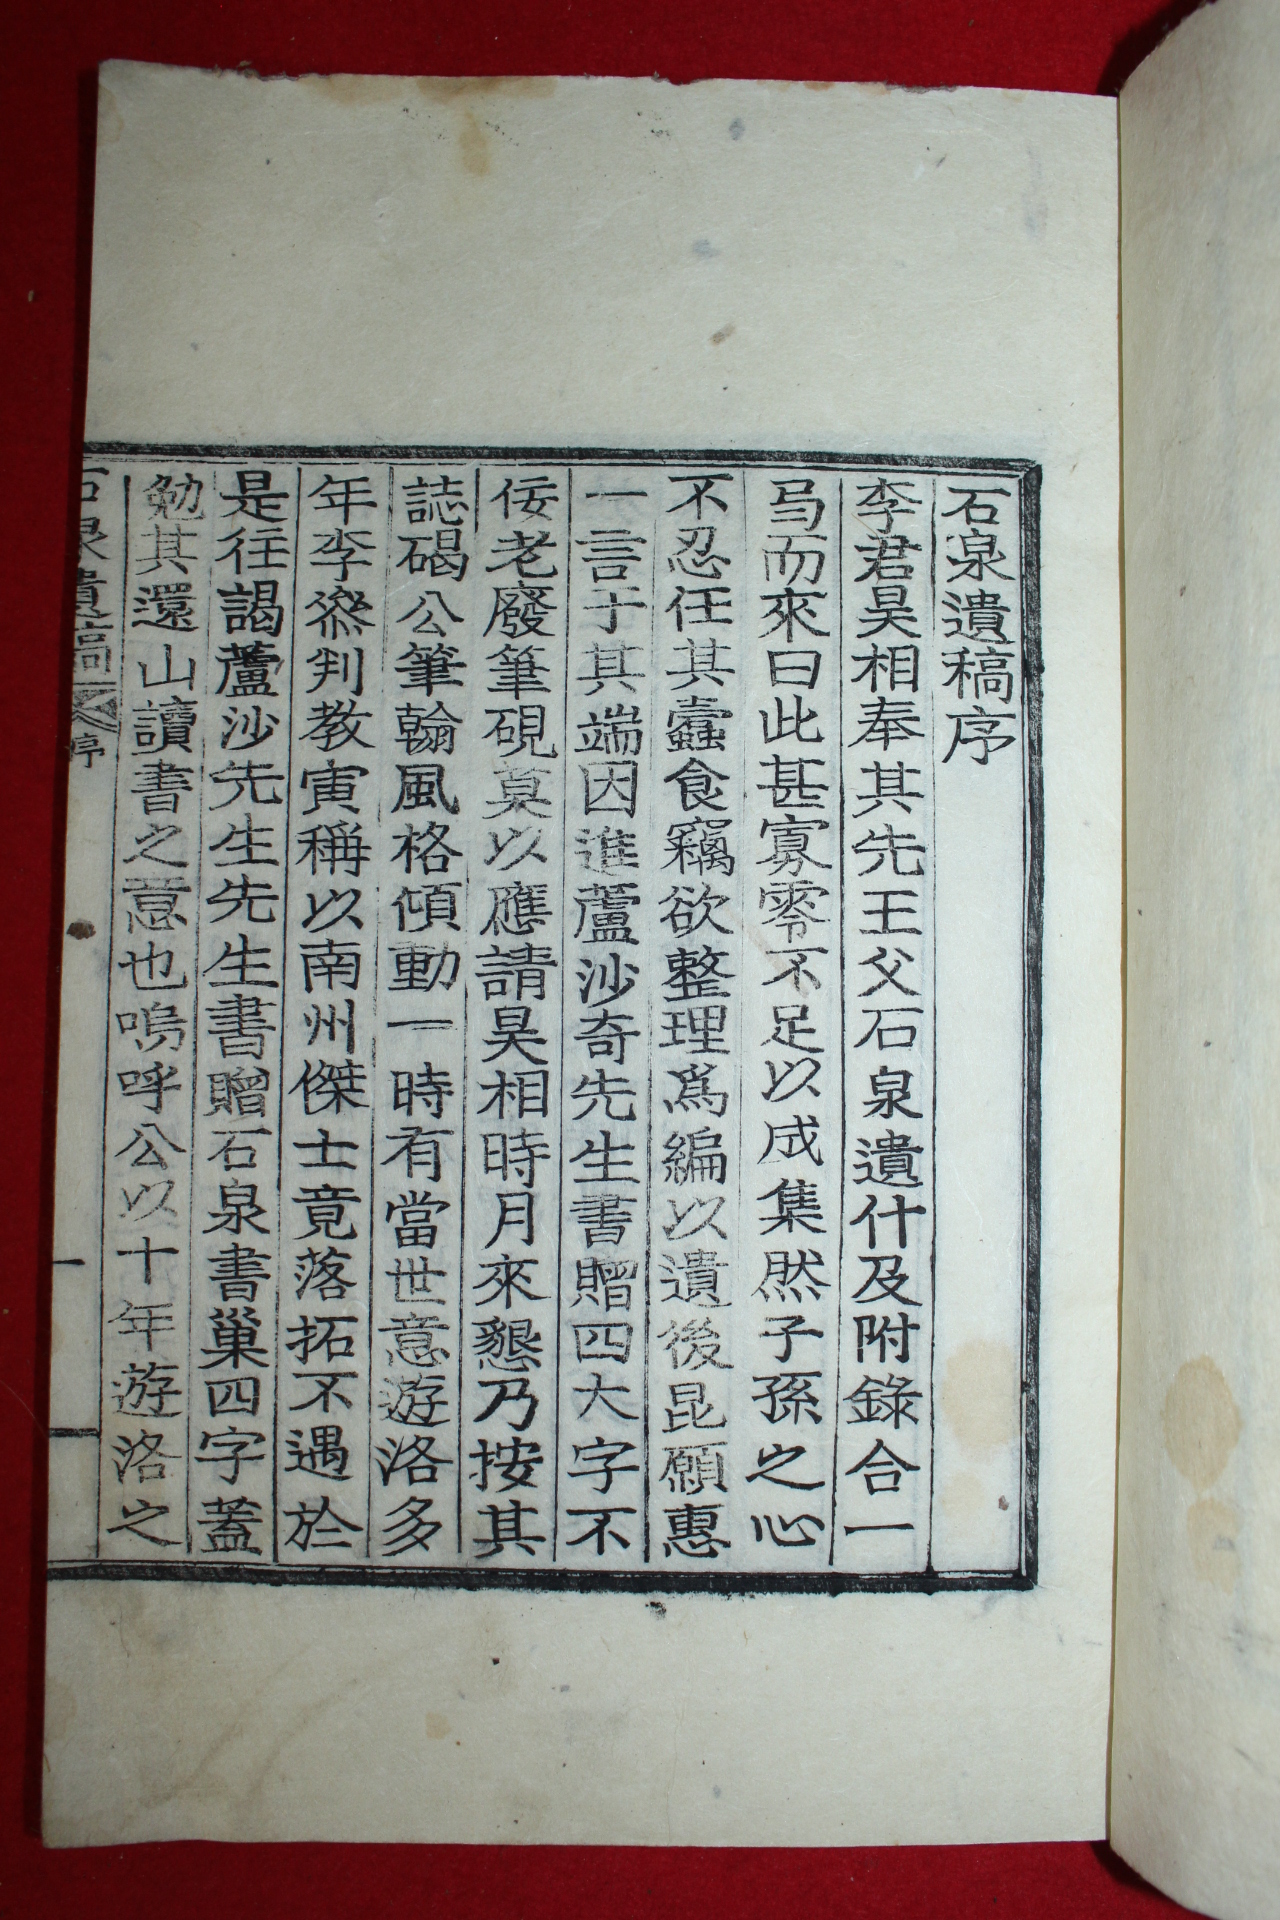 石泉遺稿序
李君昊相奉其先王父石泉遺什及附錄合一
弓而來曰此甚寡零不足以成集然子孫之心
不忍任其蠹食竊欲整理爲編以遺後昆願惠
一言于其端因進蘆沙奇先生書贈四大字不
佞老廢筆硯莫以應請昊相時月來懇乃按其
誌碣公筆翰風格傾動一時有當世意遊洛多
年李叅判教寅稱以南州傑士竟落拓不遇於
是往謁蘆沙先生先生書贈石泉書巢四字蓋
勉其還山讀書之意也嗚呼公以十年遊洛之
石泉遺稿 序 一